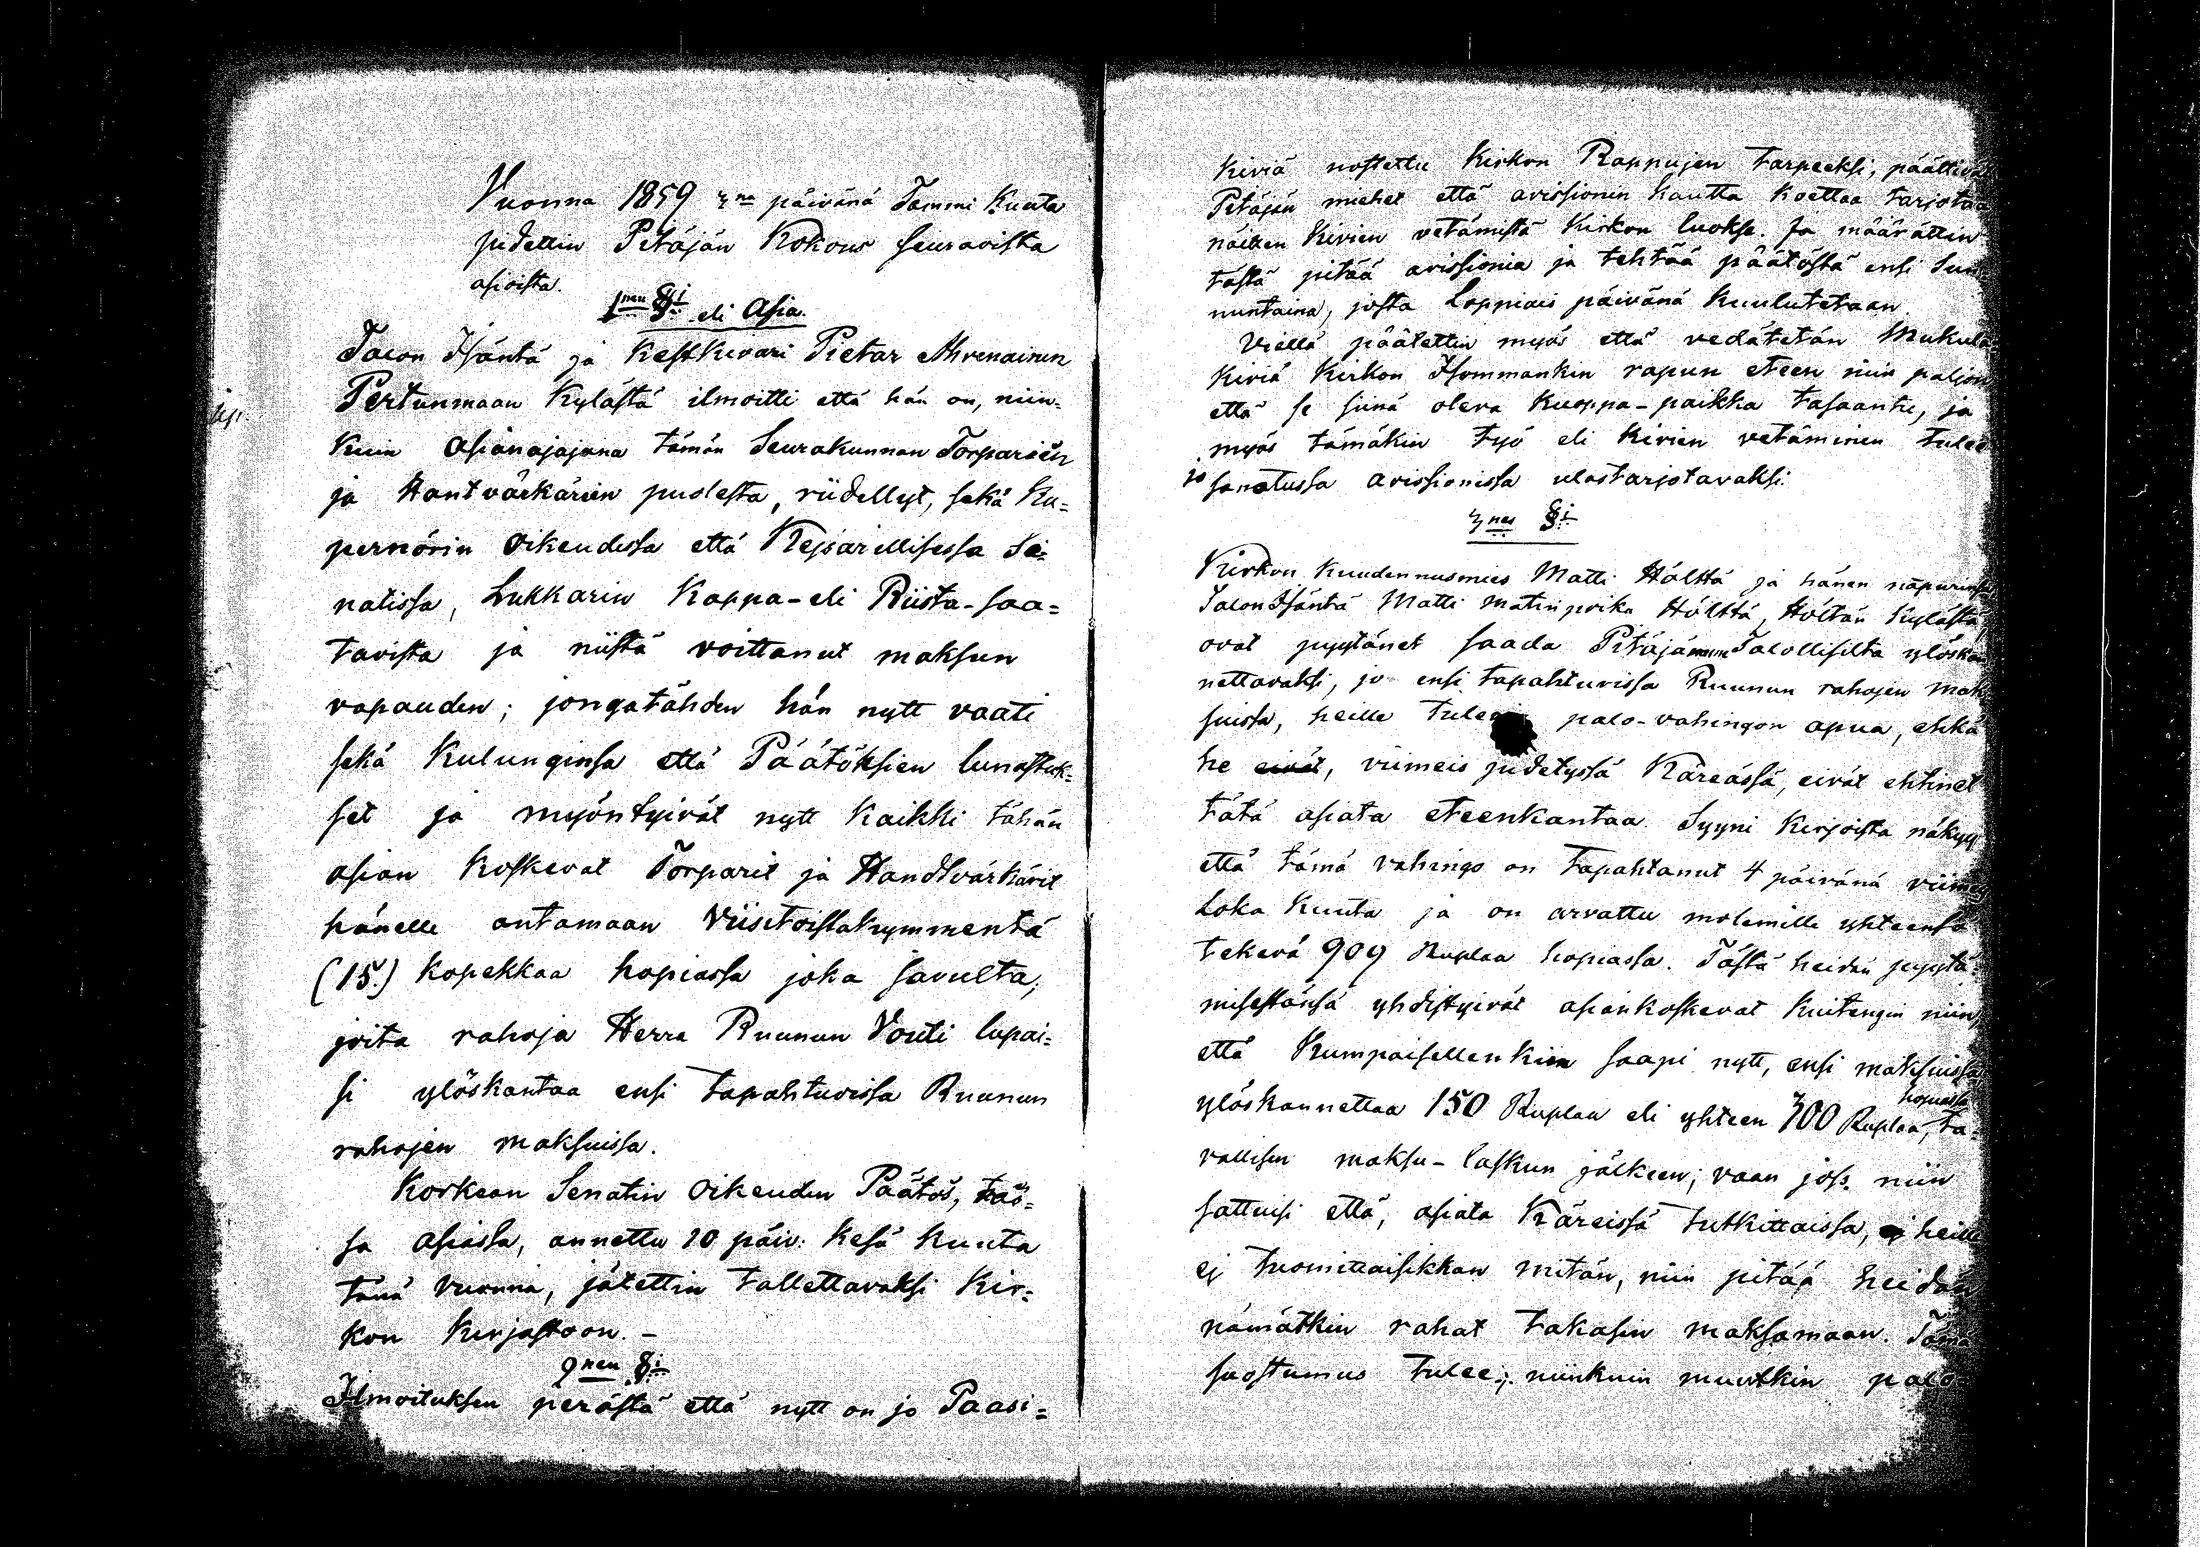 Vuonna 1859 3na päivänä Tammi Kuuta
pidettin Pitäjän Kokous seuravista
asioista.
1nen §i eli Asia.
Talon Isäntä ja Kestkivari Pietar Ahvenainen
Pertunmaan Kylästä ilmoitti että hän on, niin-
kuin asianajajana tämän Seurakunnan Torparien
ja Hantvärkärien puolesta, riidellyt, sekä Ku=
pernörin Oikeudessa että Kejsarillisessa Se=
natissa, Lukkarin Kappa-eli Riista-saa=
tavista ja niistä voittanut maksun
vapauden; jongatähden hän nytt vaati
sekä Kulunginsa että Päätöksien lunastuk=
set ja myöntyivät nytt Kaikki tähän
asian koskevat Torparit ja Handtvärkärit
hänelle antamaan Viisitoistakymmentä
(15.) Kopekkaa hopiassa joka savulta,
joita rahoja Herra Ruunun Vouti lupai=
si ylöskantaa ensi tapahtuvissa Ruunun
rahojen maksuissa.
Korkean Senatin Oikeuden Päätös, täs=
sä asiassa, annettu 10 päiv: Kesä kuuta
tänä vuonna, jätettin tallettavaksi Kir=
kon Kirjastoon. -
2nen §i
Ilmoituksen perästä että nytt on jo Paasi=
Kiviä nostettu Kirkon Rappujen tarpeeksi, päättivät
Pitäjän miehet että avissionin kautta koettaa tarjotaa
näitten Kivien vetämistä Kirkon luokse. Ja määrättin
tästä pitää avissionia ja tehtää päätöstä ensi Sun
nuntaina, josta Loppiais päivänä Kuulutetaan
Viellä päätettin myös että vedätetän Mukula
Kiviä Kirkon Isommankin rapun eteen niin paljon
että se siinä oleva Kuoppa-paikka tasaantu, ja
myös tämäkin työ eli Kivien vetäminen tulee
sanotussa avissionissa ulostarjotavaksi.
3nes §i
Kirkon Kuudennusmies Matti Hölttä ja hänen napurinsa
Talon Isäntä Matti Matinpoika Hölttä, Höltän Kylästä,
ovat pyytänet saada Pitäjän Talollisilta ylöskan
nettavaksi, jo ensi tapahtuvissa Ruunun rahojen mak
suissa, heille tuleva palo-vahingon apua, ehkä
he eivät, viimeis pidetyssä Käreässä, eivät ehtinet
tätä asiata eteenkantaa. Syyni Kirjoista näkyy
että tämä vahingo on tapahtanut 4 päivänä viimes
Loka Kuuta ja on arvattu molemille yhteensä
tekevä 909 Ruplaa hopiassa. Tästä heidän pyytä=
misestänsä yhdistyivät asiankoskevat kuitengin niin,
että Kumpaisellenkin saapi nytt, ensi maksuissa
ylöskannettaa 150 Ruplaa eli yhteen 300 Ruplaa hopiassa, ta=
vallisen maksu-laskun jälkeen; vaan jos niin
sattuisi että, asiata Käreissä tutkittaissa, ej heille
ej tuomittaisikkan mitän, niin pitää heidän
nämätkin rahat takasin maksamaan. Tämä
suostumus tulee; niinkuin muutkin palo